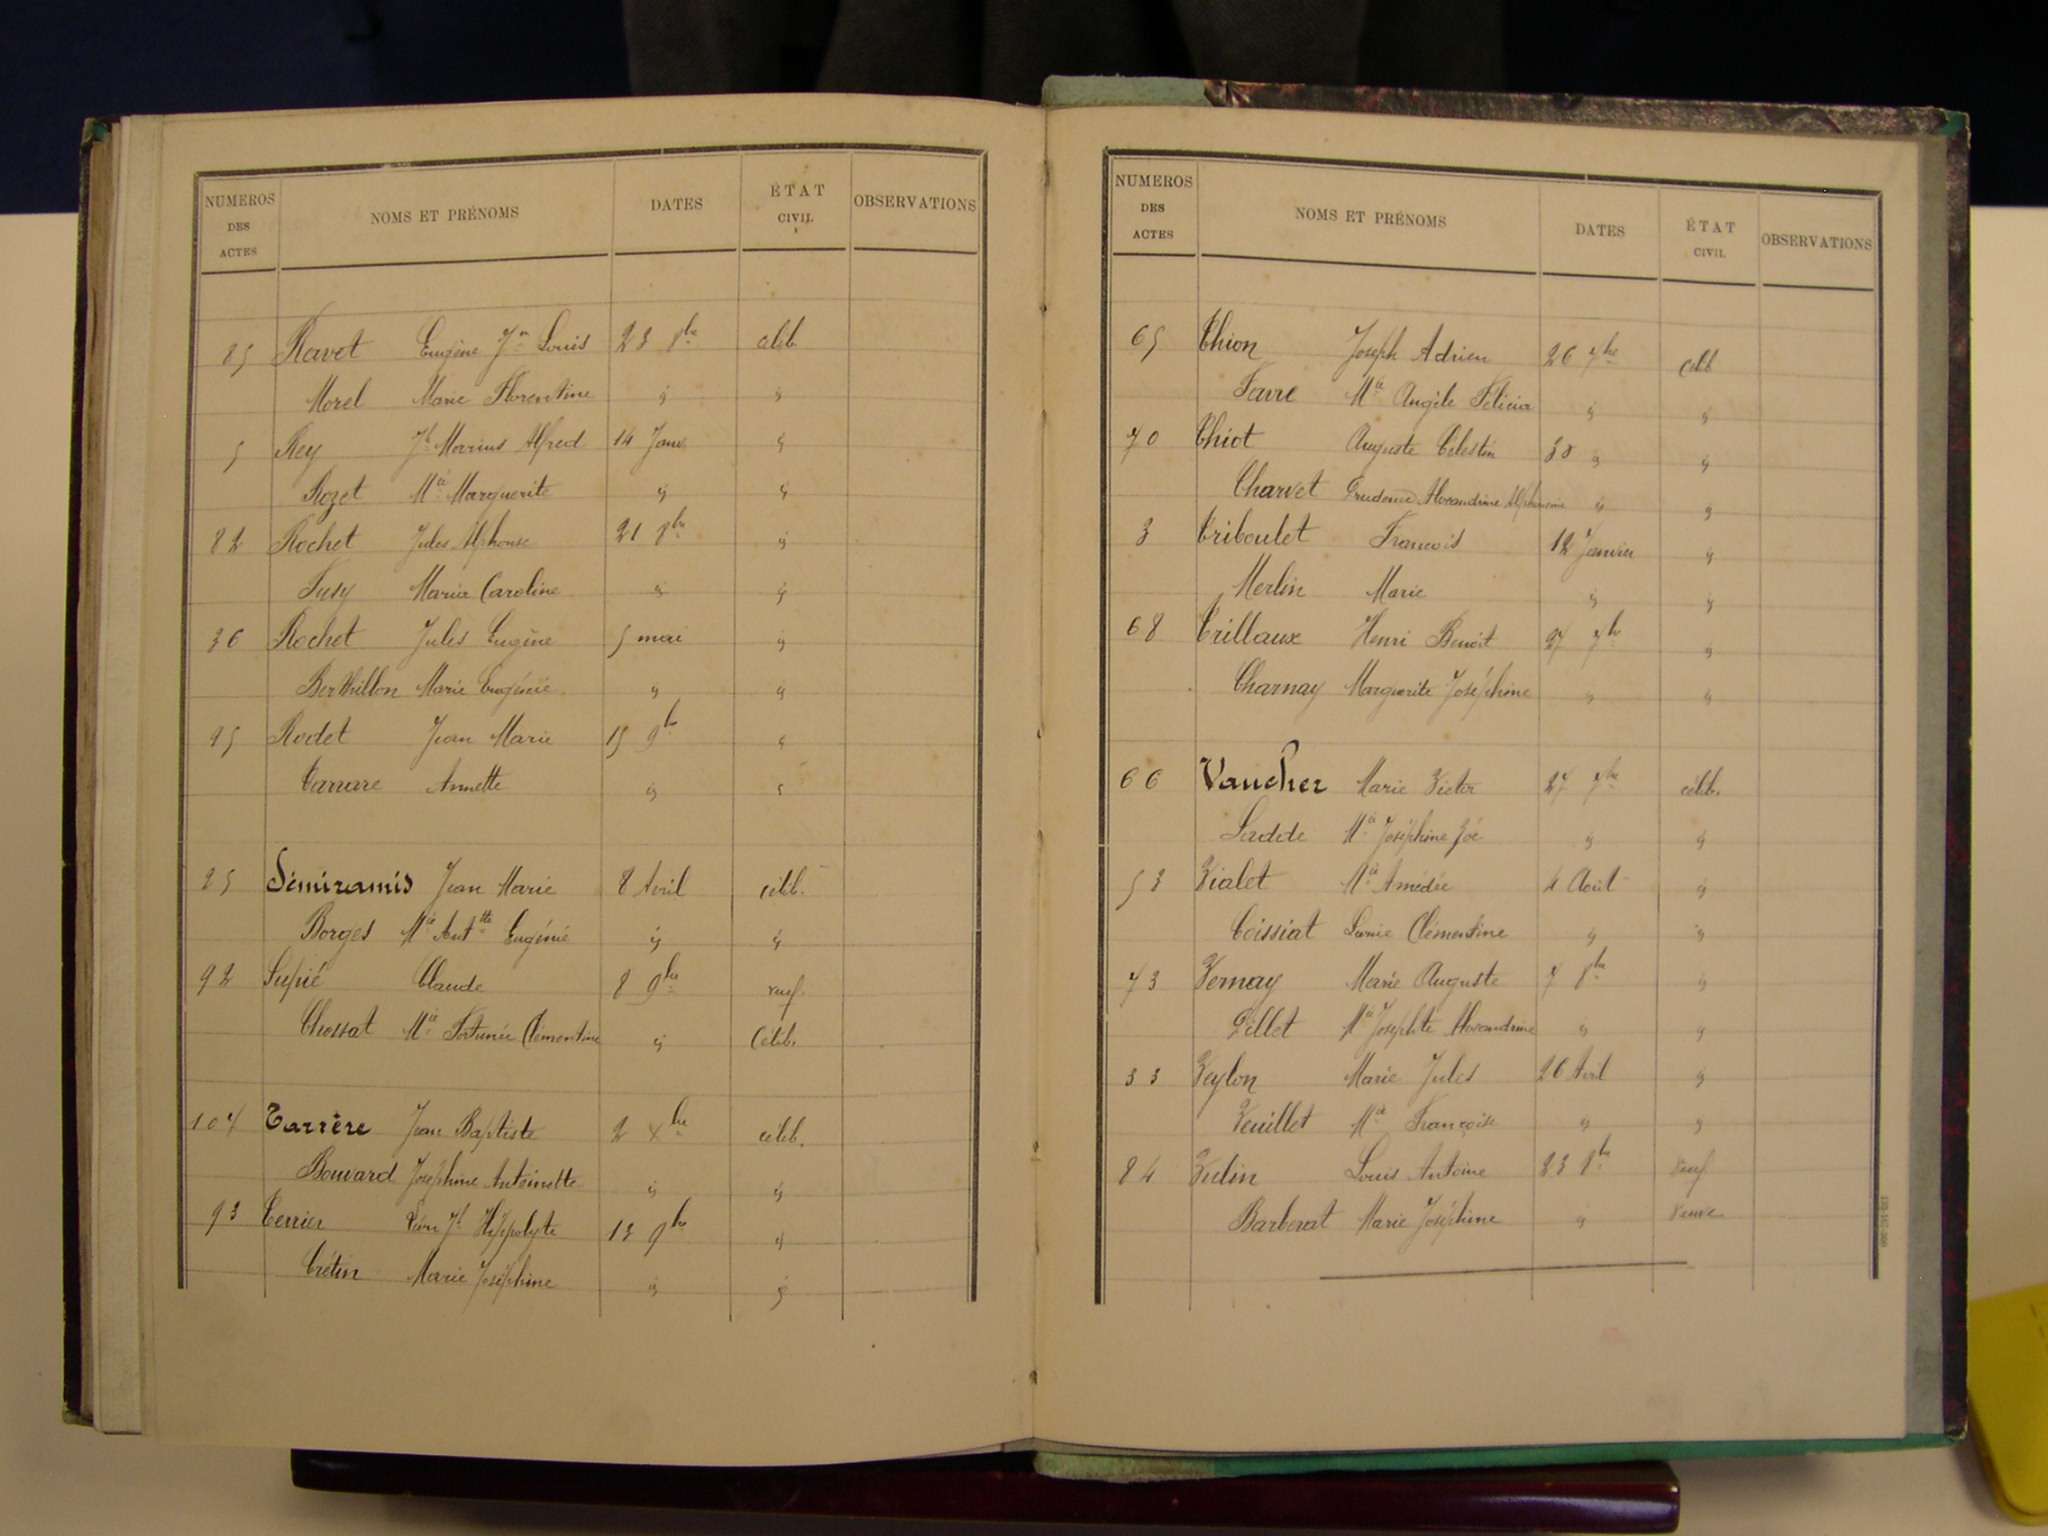 NUMEROS DES ACTES NOMS ET PRÉNOMS DATES ÉTAT CIVIL OBSERVATIONS
85 Ravet Eugène Jn Louis 23 8bre célib.
Morel Marie Florentine " "
5 Rey Jh Marius Alfred 14 Janv "
Rozet Mie Marguerite " "
82 Rochet Jules Alphonse 21 8bre "
Susy Maria Caroline " "
36 Rochet Jules Eugène 5 mai "
Berthillon Marie Eugénie " "
95 Rodet Jean Marie 15 9bre "
Carrare Annette " "
25 Sémiramis Jean Marie 8 Avril célib.
Borges Mie Anttte Eugénie " "
92 Supié Claude 8 9bre veuf.
Chossat Mie Fortunée Clémentine " Célib.
107 Tarrère Jean Baptiste 2 Xbre célib.
Bouvard Joséphine Antoinette " "
93 Terrier Léon Jh Hippolyte 13 9bre "
Crétin Marie Joséphine " "
NUMEROS DES ACTES NOMS ET PRÉNOMS DATES ÉTAT CIVIL OBSERVATIONS
65 Thion Joseph Adrien 26 7bre célib
Favre Mie Angèle Félicia " "
70 Thiot Auguste Célestin 30 " "
Charvet Prudence Alexandrine Alphonsine " "
3 Triboulet François 12 Janvier "
Merlin Marie " "
68 Trillaux Henri Benoit 27 7bre "
Charnay Marguerite Joséphine " "
66 Vaucher Marie Victor 27 7bre célib.
Mie Joséphine Zoé " "
53 Vialet Mie Amédée 4 Août "
Coissiat Clémentine " "
73 Vernay Marie Auguste 7 8bre "
Mie Josephte Alexandrine " "
33 Veylon Marie Jules 26 Avril "
Veuillet Mie Françoise " "
84 Vulin Louis Antoine 23 8bre Veuf.
Barberat Marie Joséphine " Veuve